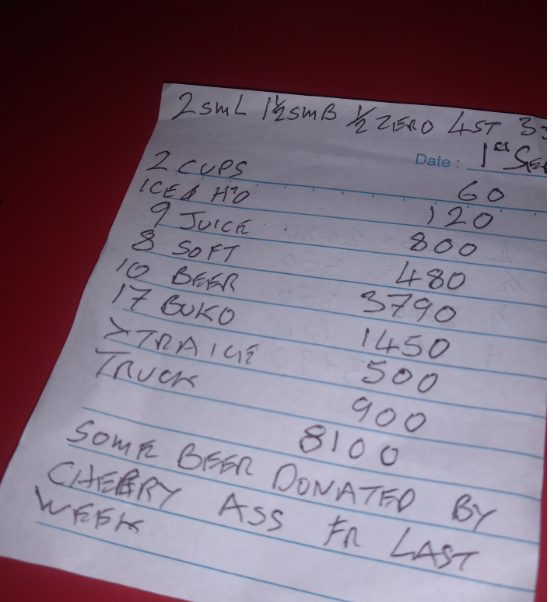 2 SML 1½ SMB ½ ZERO 4ST 3
Date : 1st SE
2 CUPS 60
ICE & H2O 120
9 JUICE 800
8 SOFT 480
10 BEER 3790
17 BUKO 1450
XTRA ICE 500
TRUCK 900
8100
SOME BEER DONATED BY
CHERRY ASS FR LAST
WEEK